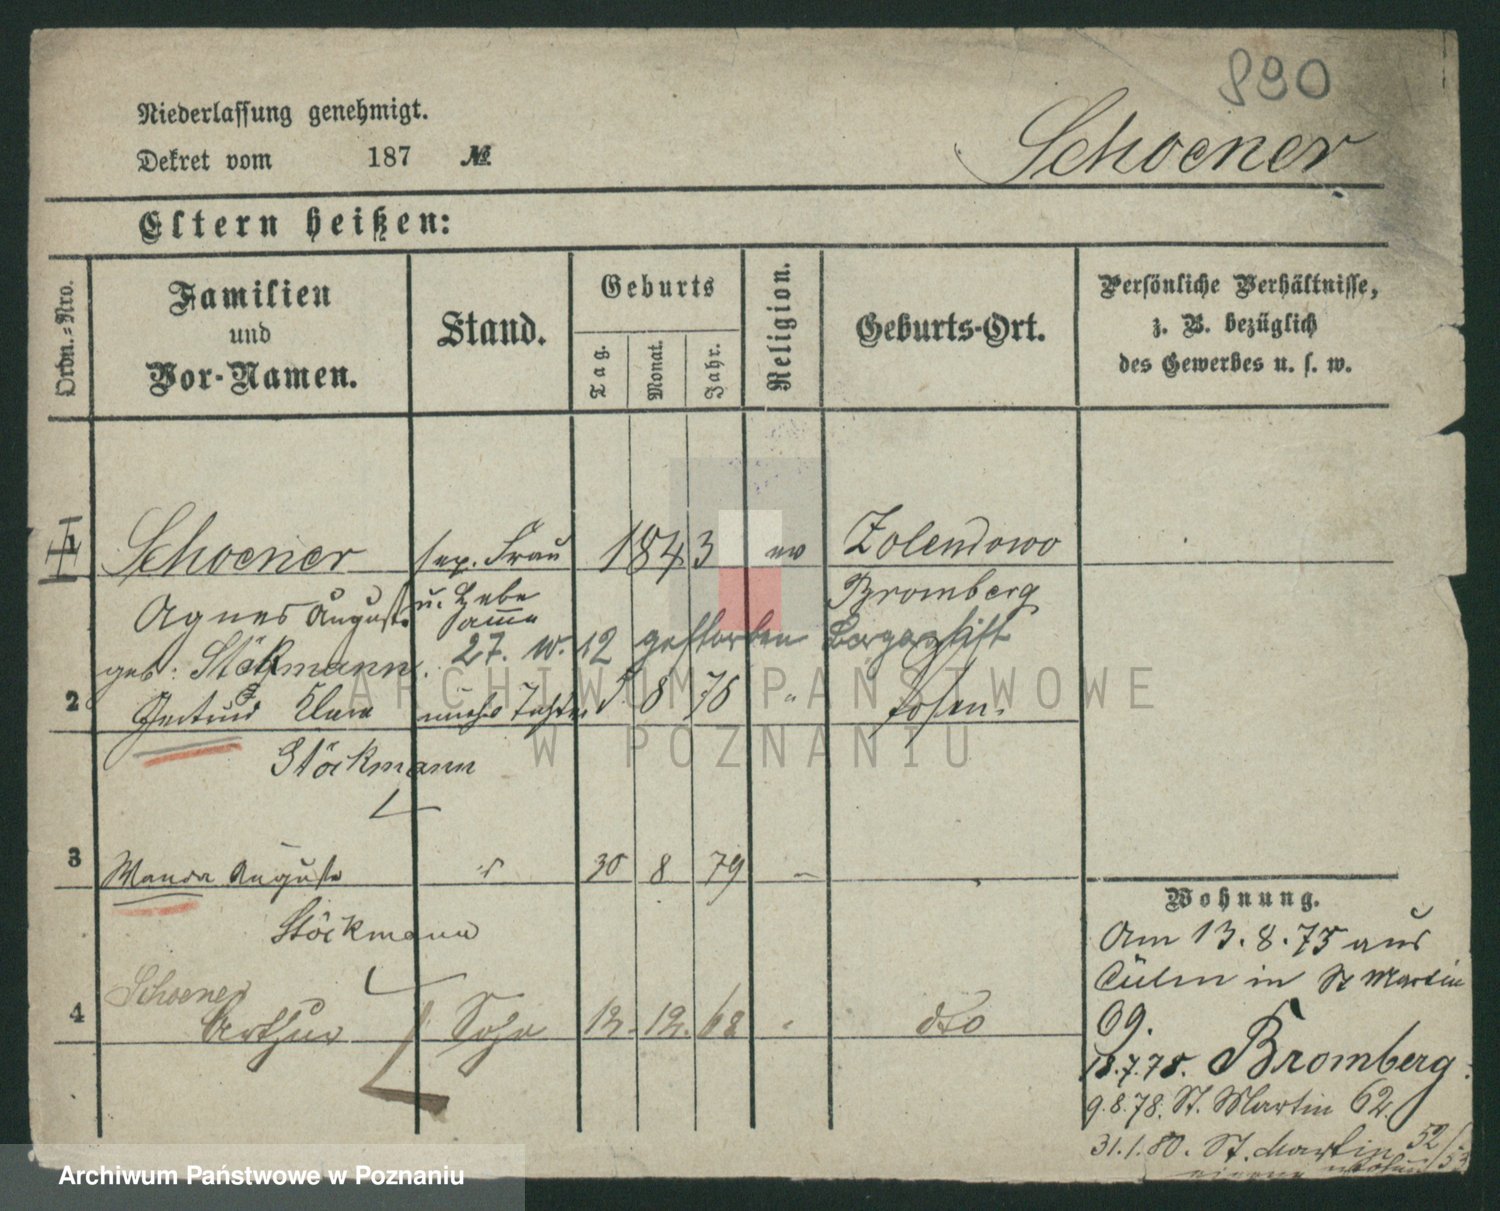 890
Niederlassung genehmigt.
Dekret vom 187 №
Schoener
Eltern heißen:
Ordn.-Nro.
Familien
und
Vor-Namen.
Stand.
Geburts
Tag.
Monat.
Jahr.
Religion.
Geburts-Ort.
Persönliche Verhältnisse,
z. B. bezüglich
des Gewerbes u. s. w.
1 Schoener sep. Frau 1843 ev Zolendowo
Agnes August. u. Hebe Bromberg
amme
geb: Stöckmann. 27. 12 gestorben
2 Gertrud Clara 5 8 78 " Posen.
Stöckmann
3 Wanda Auguste " 30 8 79 "
Stöckmann
Schoener
4 Arthur Sohn 12. 12. 68 " dto
Wohnung.
Am 13.8.75 aus
Cülm in St Martin
69.
18.7.78. Bromberg.
9.8.78. St. Martin 62.
31.1.80. St. Martin 52/53
ARCHIWUM PAŃSTWOWE
W POZNANIU
Archiwum Państwowe w Poznaniu